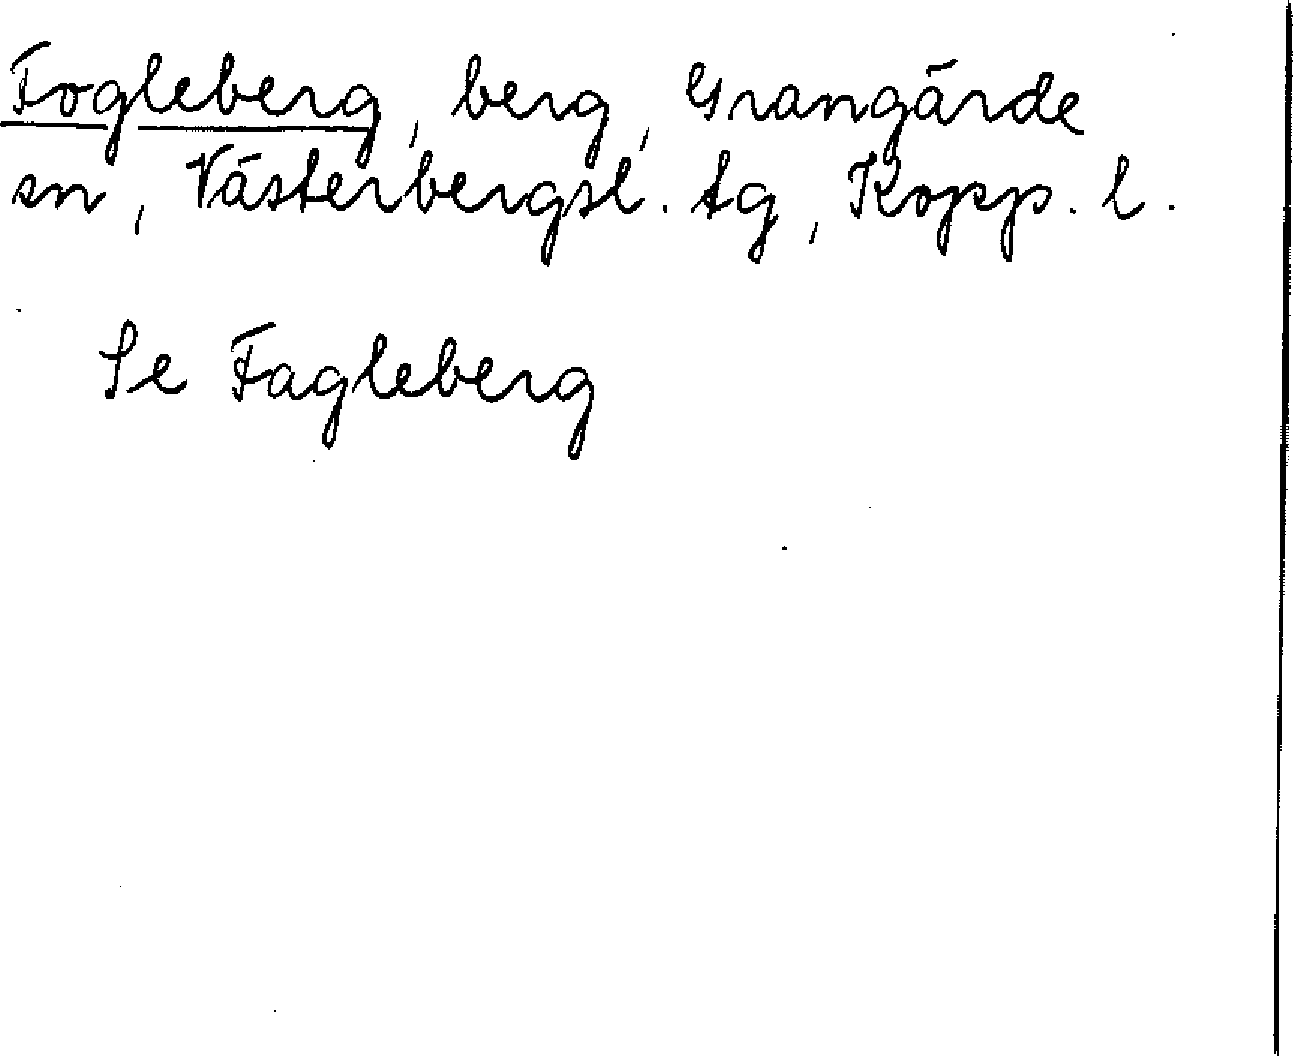 Fogleberg, berg, Grangärde
sn, Västerbergsl. tg, Kopp. l.
Se Fagleberg